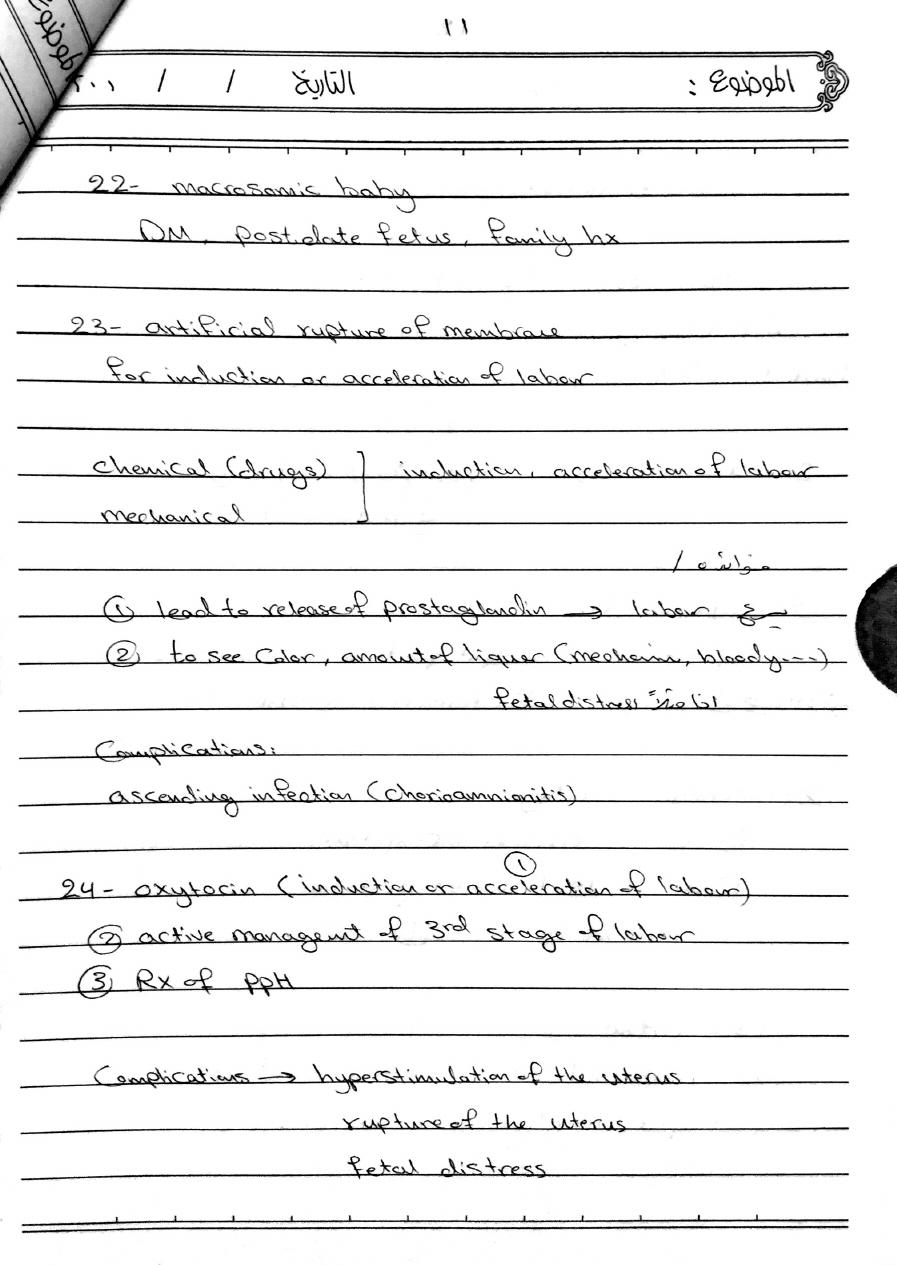 ١١
الموضوع :
التاريخ / / ٢٠٠١
الموضوع
22- macrosomic baby
DM, postdate fetus, family hx
23- artificial rupture of membrane
for induction or acceleration of labour
chemical (drugs) ] induction, acceleration of labour
mechanical
فوائده /
① lead to release of prostaglandin → labour يسرع
② to see Color, amount of liquer (meconium, bloody---)
fetal distress
Complications:
ascending infection (chorioamnionitis)
24- oxytocin ( ① induction or acceleration of labour)
② active managent of 3rd stage of labour
③ Rx of PPH
Complications → hyperstimulation of the uterus
rupture of the uterus
fetal distress